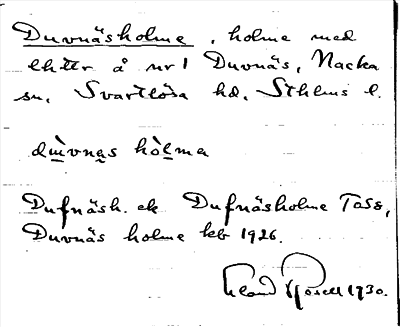 Duvnäsholme, holme med
lhttr å nr 1 Duvnäs, Nacka
sn, Svartlösa hd, Sthlms l.
dɯ̀vnas hòlma
Dufnäsh. ek Dufnäsholme Tass,
Duvnäs holme kb 1926.
1930.